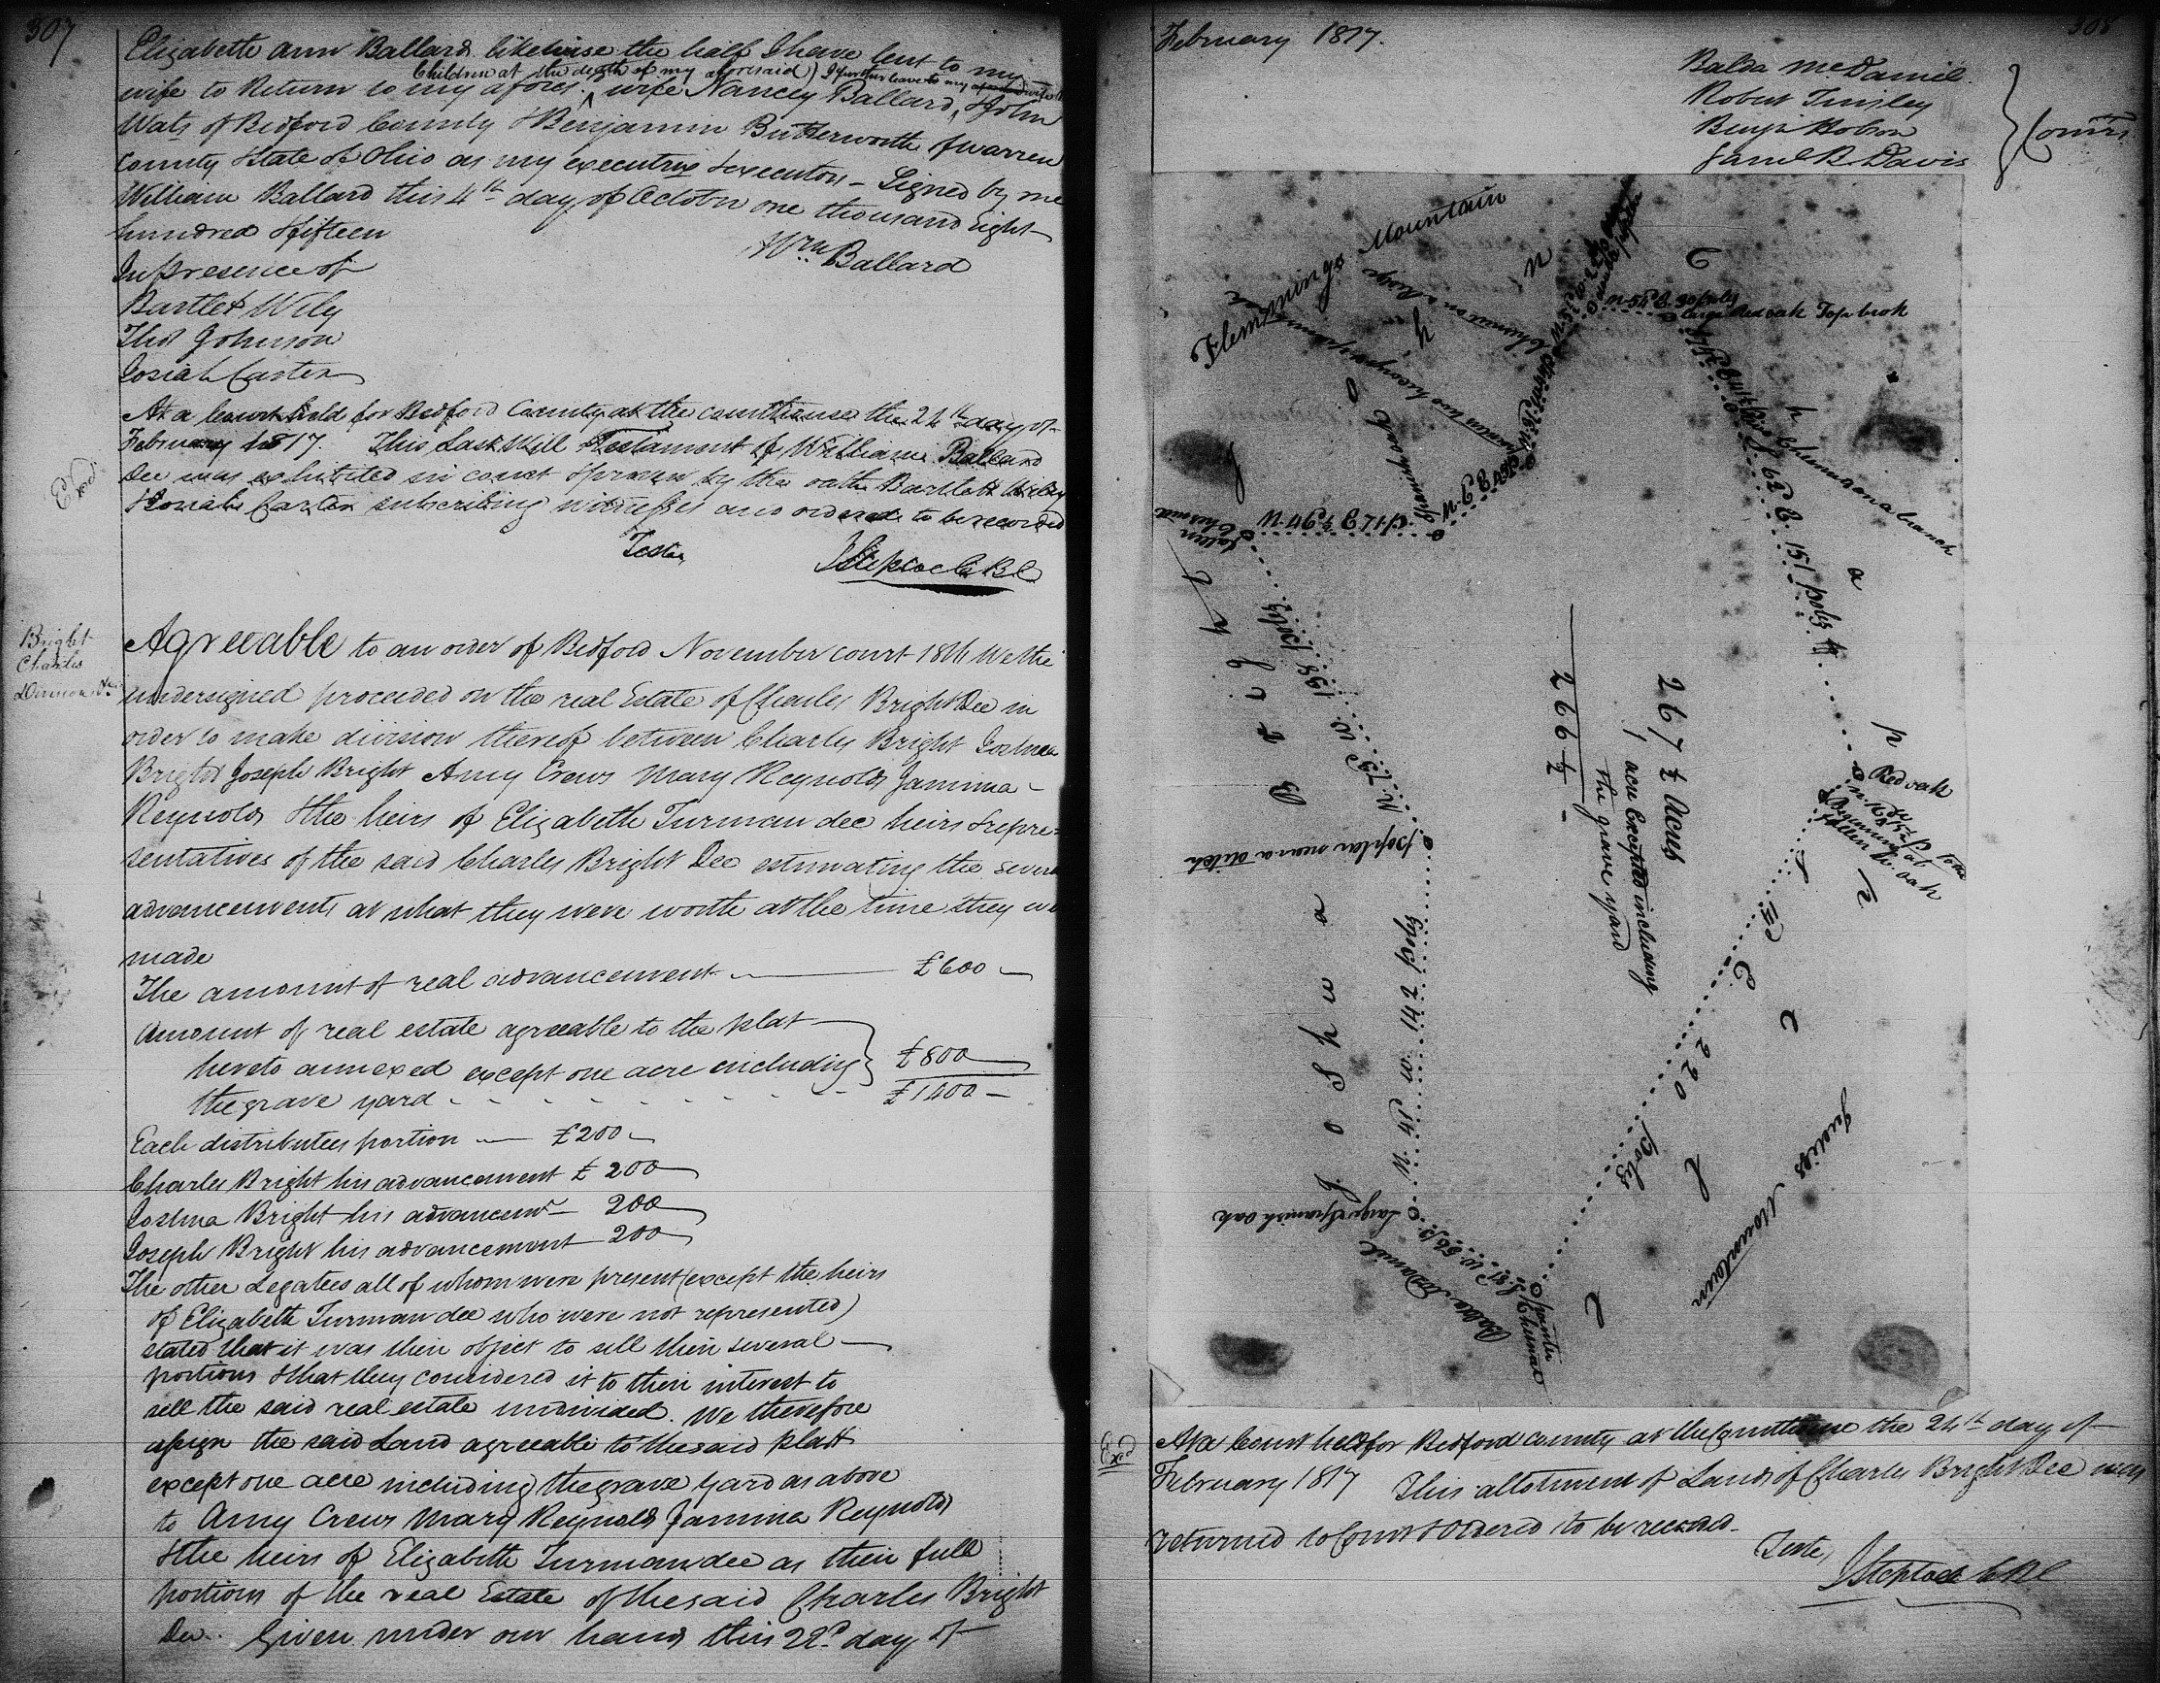 307
Elizabeth ann Ballard likewise the half I have lent to my
Children at the death of my aforesaid) I further leave to my
wife to Return to my afores. ^ wife Nancy Ballard, & John
Wats of Bedford County & Benjamin Butterworth of warren
County State of Ohio as my executrix & executors – Signed by me
William Ballard this 4th day of October one thousand Eight
hundred & fifteen
Wm Ballard
In presence of
Bartlet Wily
Thos Johnson
Josiah Carter
Exd.
At a Court held for Bedford County at the courthouse the 24th day of
February 1817. This Last Will & Testament of William Ballard
Dec was exhibited in court & proven by the oaths Bartlett Wiley
& Josiah Carter subscribing witnesses and ordered to be recorded
Teste,
J Steptoe C B C
Bright
Charles
Division &c
Agreeable to an order of Bedford November court 1816 We the
undersigned proceeded on the real Estate of Charles Bright Dec in
order to make division thereof between Charles Bright Joshua
Bright Joseph Bright Amy Crews Mary Reynolds Jamima
Reynolds & the heirs of Elizabeth Turman dec heirs & repre=
sentatives of the said Charles Bright Dec estimating the several
advancements at what they were worth at the time they we
made
The amount of real advancement £600
Amount of real estate agreeable to the plat
hereto annexed except one acre including } £800
the grave yard £1400
Each distributees portion £200
Charles Bright his advancement £200
Joshua Bright his advancemt 200
Joseph Bright his advancement 200
The other Legatees all of whom were present (except the heirs
of Elizabeth Turman dec who were not represented)
stated that it was their object to sell their several
portions & that they considered it to their interest to
sell the said real estate undivided. We therefore
assign the said Land agreeable to the said platt
except one acre including the grave yard as above
to Amy Crews Mary Reynolds Jamima Reynolds
& the heirs of Elizabeth Turman dec as their full
portions of the real Estate of the said Charles Bright
Dec. Given under our hands this 22d day of
308
February 1817.
Balda McDaniel
Robert Tinsley
Benja Hobson
Saml R Davis
} Comrs
Flemmings Mountain
N 54 E 30 poles
large Red oak Top broke
Chesnut on a Ridge
Spanish oak
fallen Chesnut
S 62 E. 151 poles
chesnut on a branch
Red oak
Beginning at
fallen W. oak
N 13 W 138 poles
poplar near a ditch
Joshua Bright
N 41 W 142 poles
large Spanish oak
Balda McDaniel
220 poles
Suckes Mountain
267½ Acres
1 acre Excepted including
the grave yard
266½
Exd
At a Court held for Bedford county at the Courthouse the 24th day of
February 1817 This allotment of Lands of Charles Bright Dec was
returned to Court & Ordered to be recorded
Teste,
J Steptoe C B C